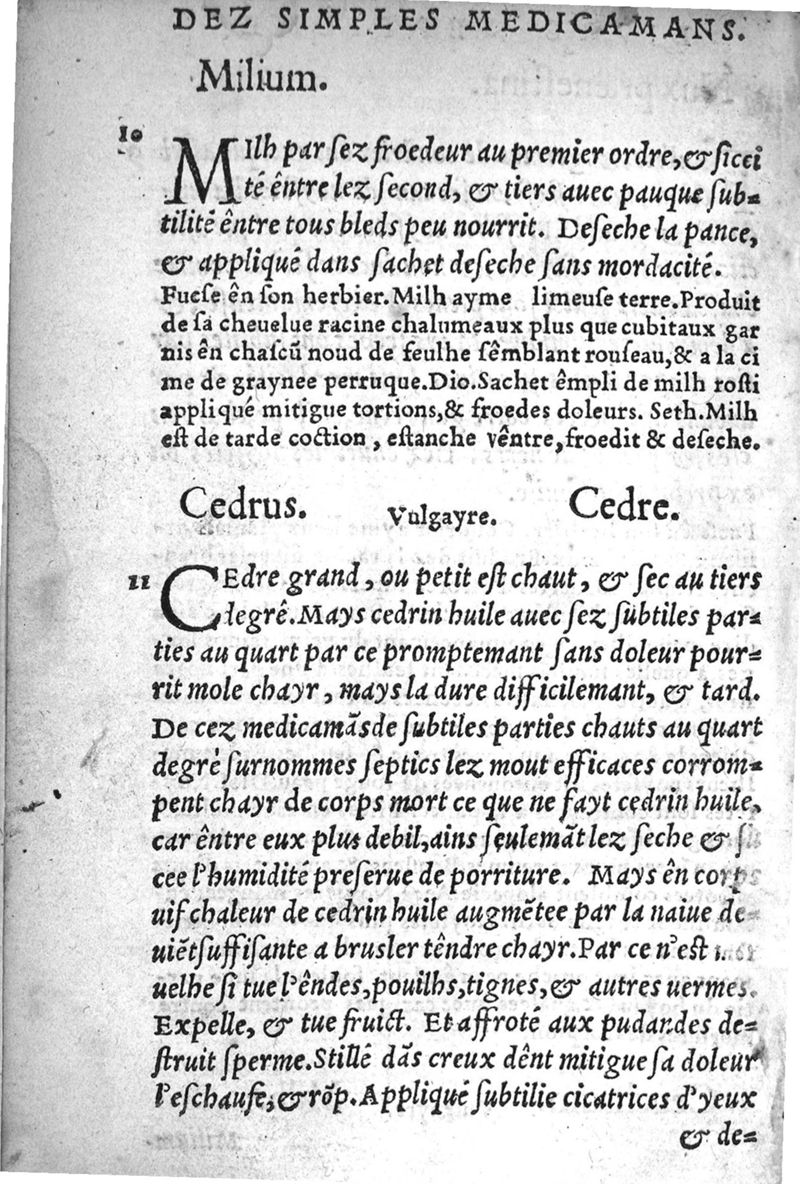 DEZ SIMPLES MEDICAMANS.
Milium.
10
MIlh par ſez froedeur au premier ordre, & ſicci
té êntre lez ſecond, & tiers auec pauque ſub-
tilité êntre tous bleds peu nourrit. Deſeche la pance,
& appliqué dans ſachet deſeche ſans mordacité.
Fucſe ên ſon herbier. Milh ayme limeuſe terre. Produit
de ſa cheuelue racine chalumeaux plus que cubitaux gar
nis ên chaſcũ noud de feulhe ſêmblant rouſeau, & a la ci
me de graynee perruque. Dio. Sachet êmpli de milh roſti
appliqué mitigue tortions, & froedes doleurs. Seth. Milh
eſt de tarde coction, eſtanche vêntre, froedit & deſeche.
Cedrus. Vulgayre. Cedre.
11
CEdre grand, ou petit eſt chaut, & ſec au tiers
degrê. Mays cedrin huile auec ſez ſubtiles par-
ties au quart par ce promptemant ſans doleur pour-
rit mole chayr, mays la dure difficilemant, & tard.
De cez medicamãs de ſubtiles parties chauts au quart
degré ſurnommes ſeptics lez mout efficaces corrom-
pent chayr de corps mort ce que ne fayt cedrin huile,
car êntre eux plus debil, ains ſeulemãt lez ſeche &
cee l'humidité preſerue de porriture. Mays ên corps
uif chaleur de cedrin huile augmẽtee par la naiue de-
uiẽt ſuffiſante a bruſler têndre chayr. Par ce n'eſt
uelhe ſi tue l'êndes, pouilhs, tignes, & autres uermes.
Expelle, & tue fruict. Et affroté aux pudandes de-
ſtruit ſperme. Stillé dãs creux dênt mitigue ſa doleur
l'eſchauſe, & rõp. Appliqué ſubtilie cicatrices d'yeux
& de-